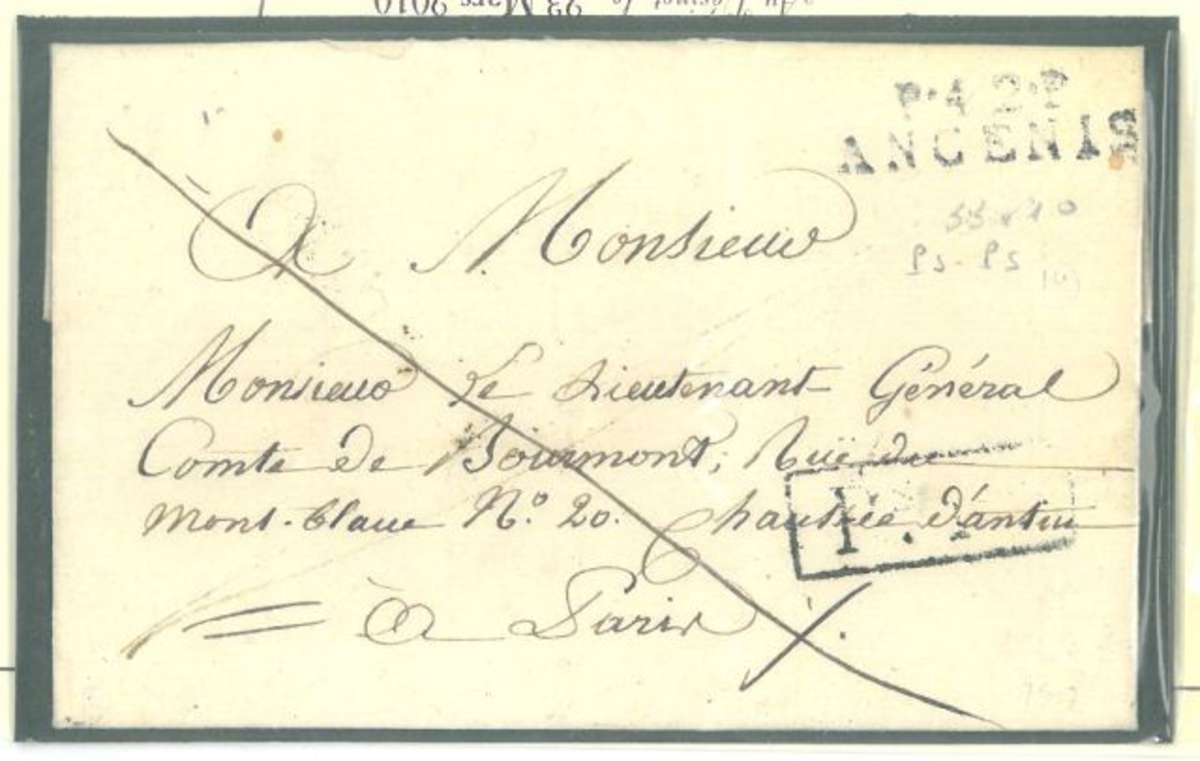 23 Mars 2010
P.42.P
ANCENIS
A Monsieur
Monsieur Le Lieutenant Général
Comte de Bourmont, Ruë du
mont-blanc N.o 20. Chaussée d'antin
P.P.
à Paris